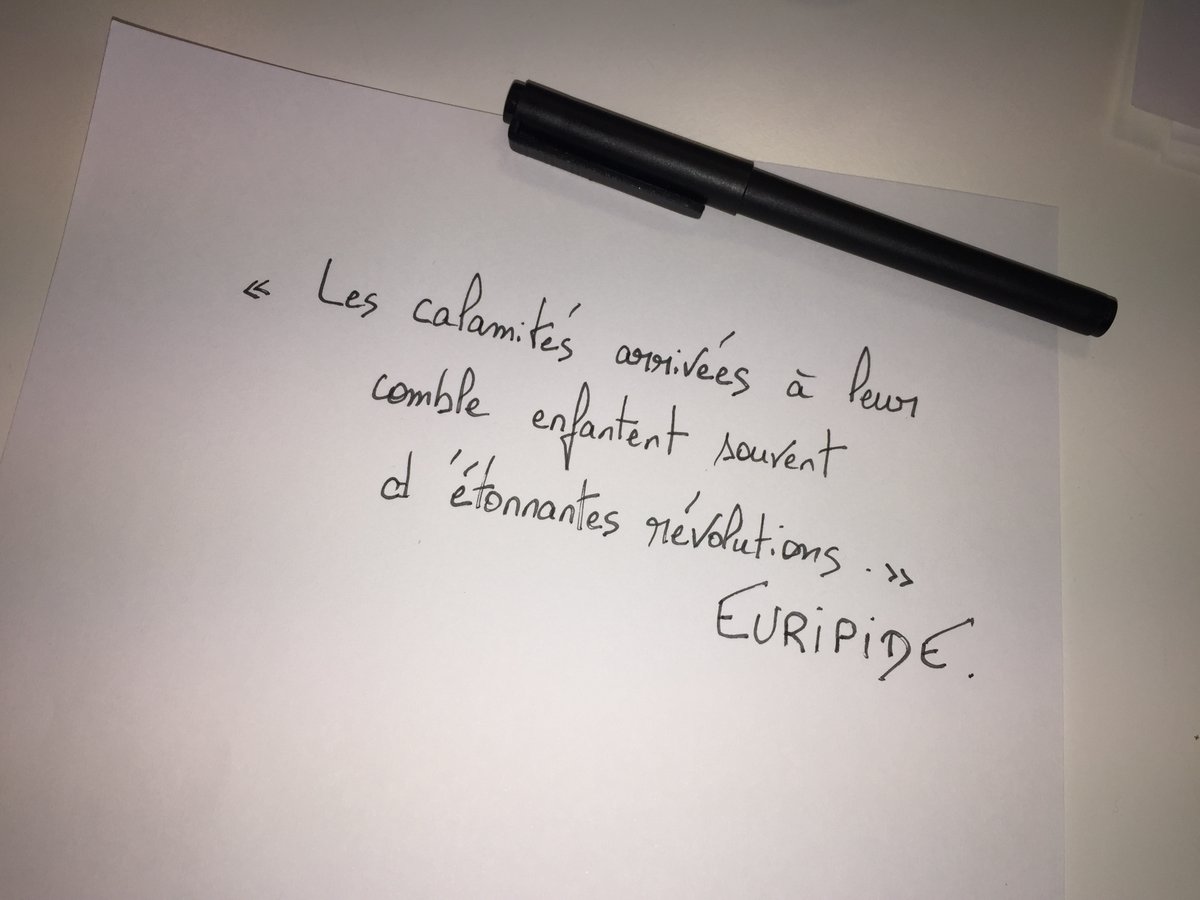 « Les calamités arrivées à leur
comble enfantent souvent
d'étonnantes révolutions. »
EURIPIDE.